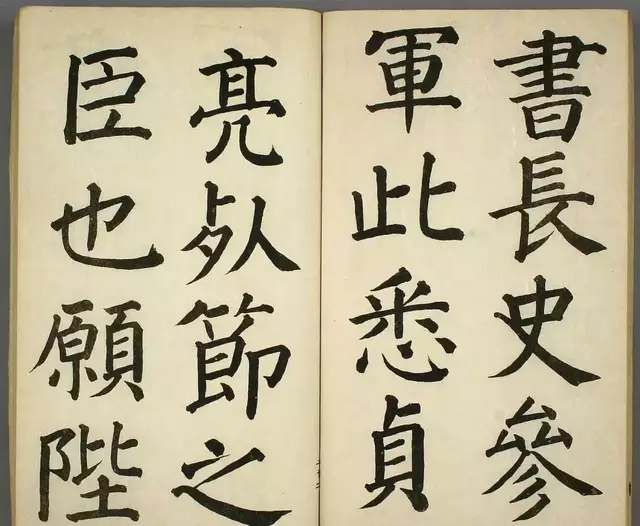 書長史參
軍此悉貞
亮死節之
臣也願陛